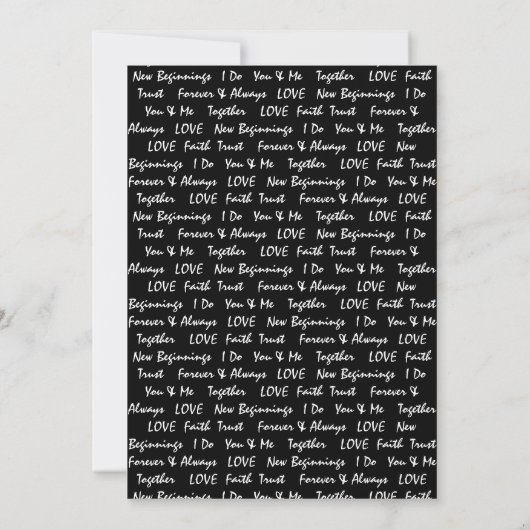 New Beginnings I Do You & Me Together LOVE Faith
Trust Forever & Always LOVE New Beginnings I Do
You & Me Together LOVE Faith Trust Forever &
Always LOVE New Beginnings I Do You & Me Together
LOVE Faith Trust Forever & Always LOVE New
Beginnings I Do You & Me Together LOVE Faith Trust
Forever & Always LOVE New Beginnings I Do You & Me
Together LOVE Faith Trust Forever & Always LOVE
New Beginnings I Do You & Me Together LOVE Faith
Trust Forever & Always LOVE New Beginnings I Do
You & Me Together LOVE Faith Trust Forever &
Always LOVE New Beginnings I Do You & Me Together
LOVE Faith Trust Forever & Always LOVE New
Beginnings I Do You & Me Together LOVE Faith Trust
Forever & Always LOVE New Beginnings I Do You & Me
Together LOVE Faith Trust Forever & Always LOVE
New Beginnings I Do You & Me Together LOVE Faith
Trust Forever & Always LOVE New Beginnings I Do
You & Me Together LOVE Faith Trust Forever &
Always LOVE New Beginnings I Do You & Me Together
LOVE Faith Trust Forever & Always LOVE New
Beginnings I Do You & Me Together LOVE Faith Trust
Forever & Always LOVE New Beginnings I Do You & Me
Together LOVE Faith Trust Forever & Always LOVE
New Beginnings I Do You & Me Together LOVE Faith